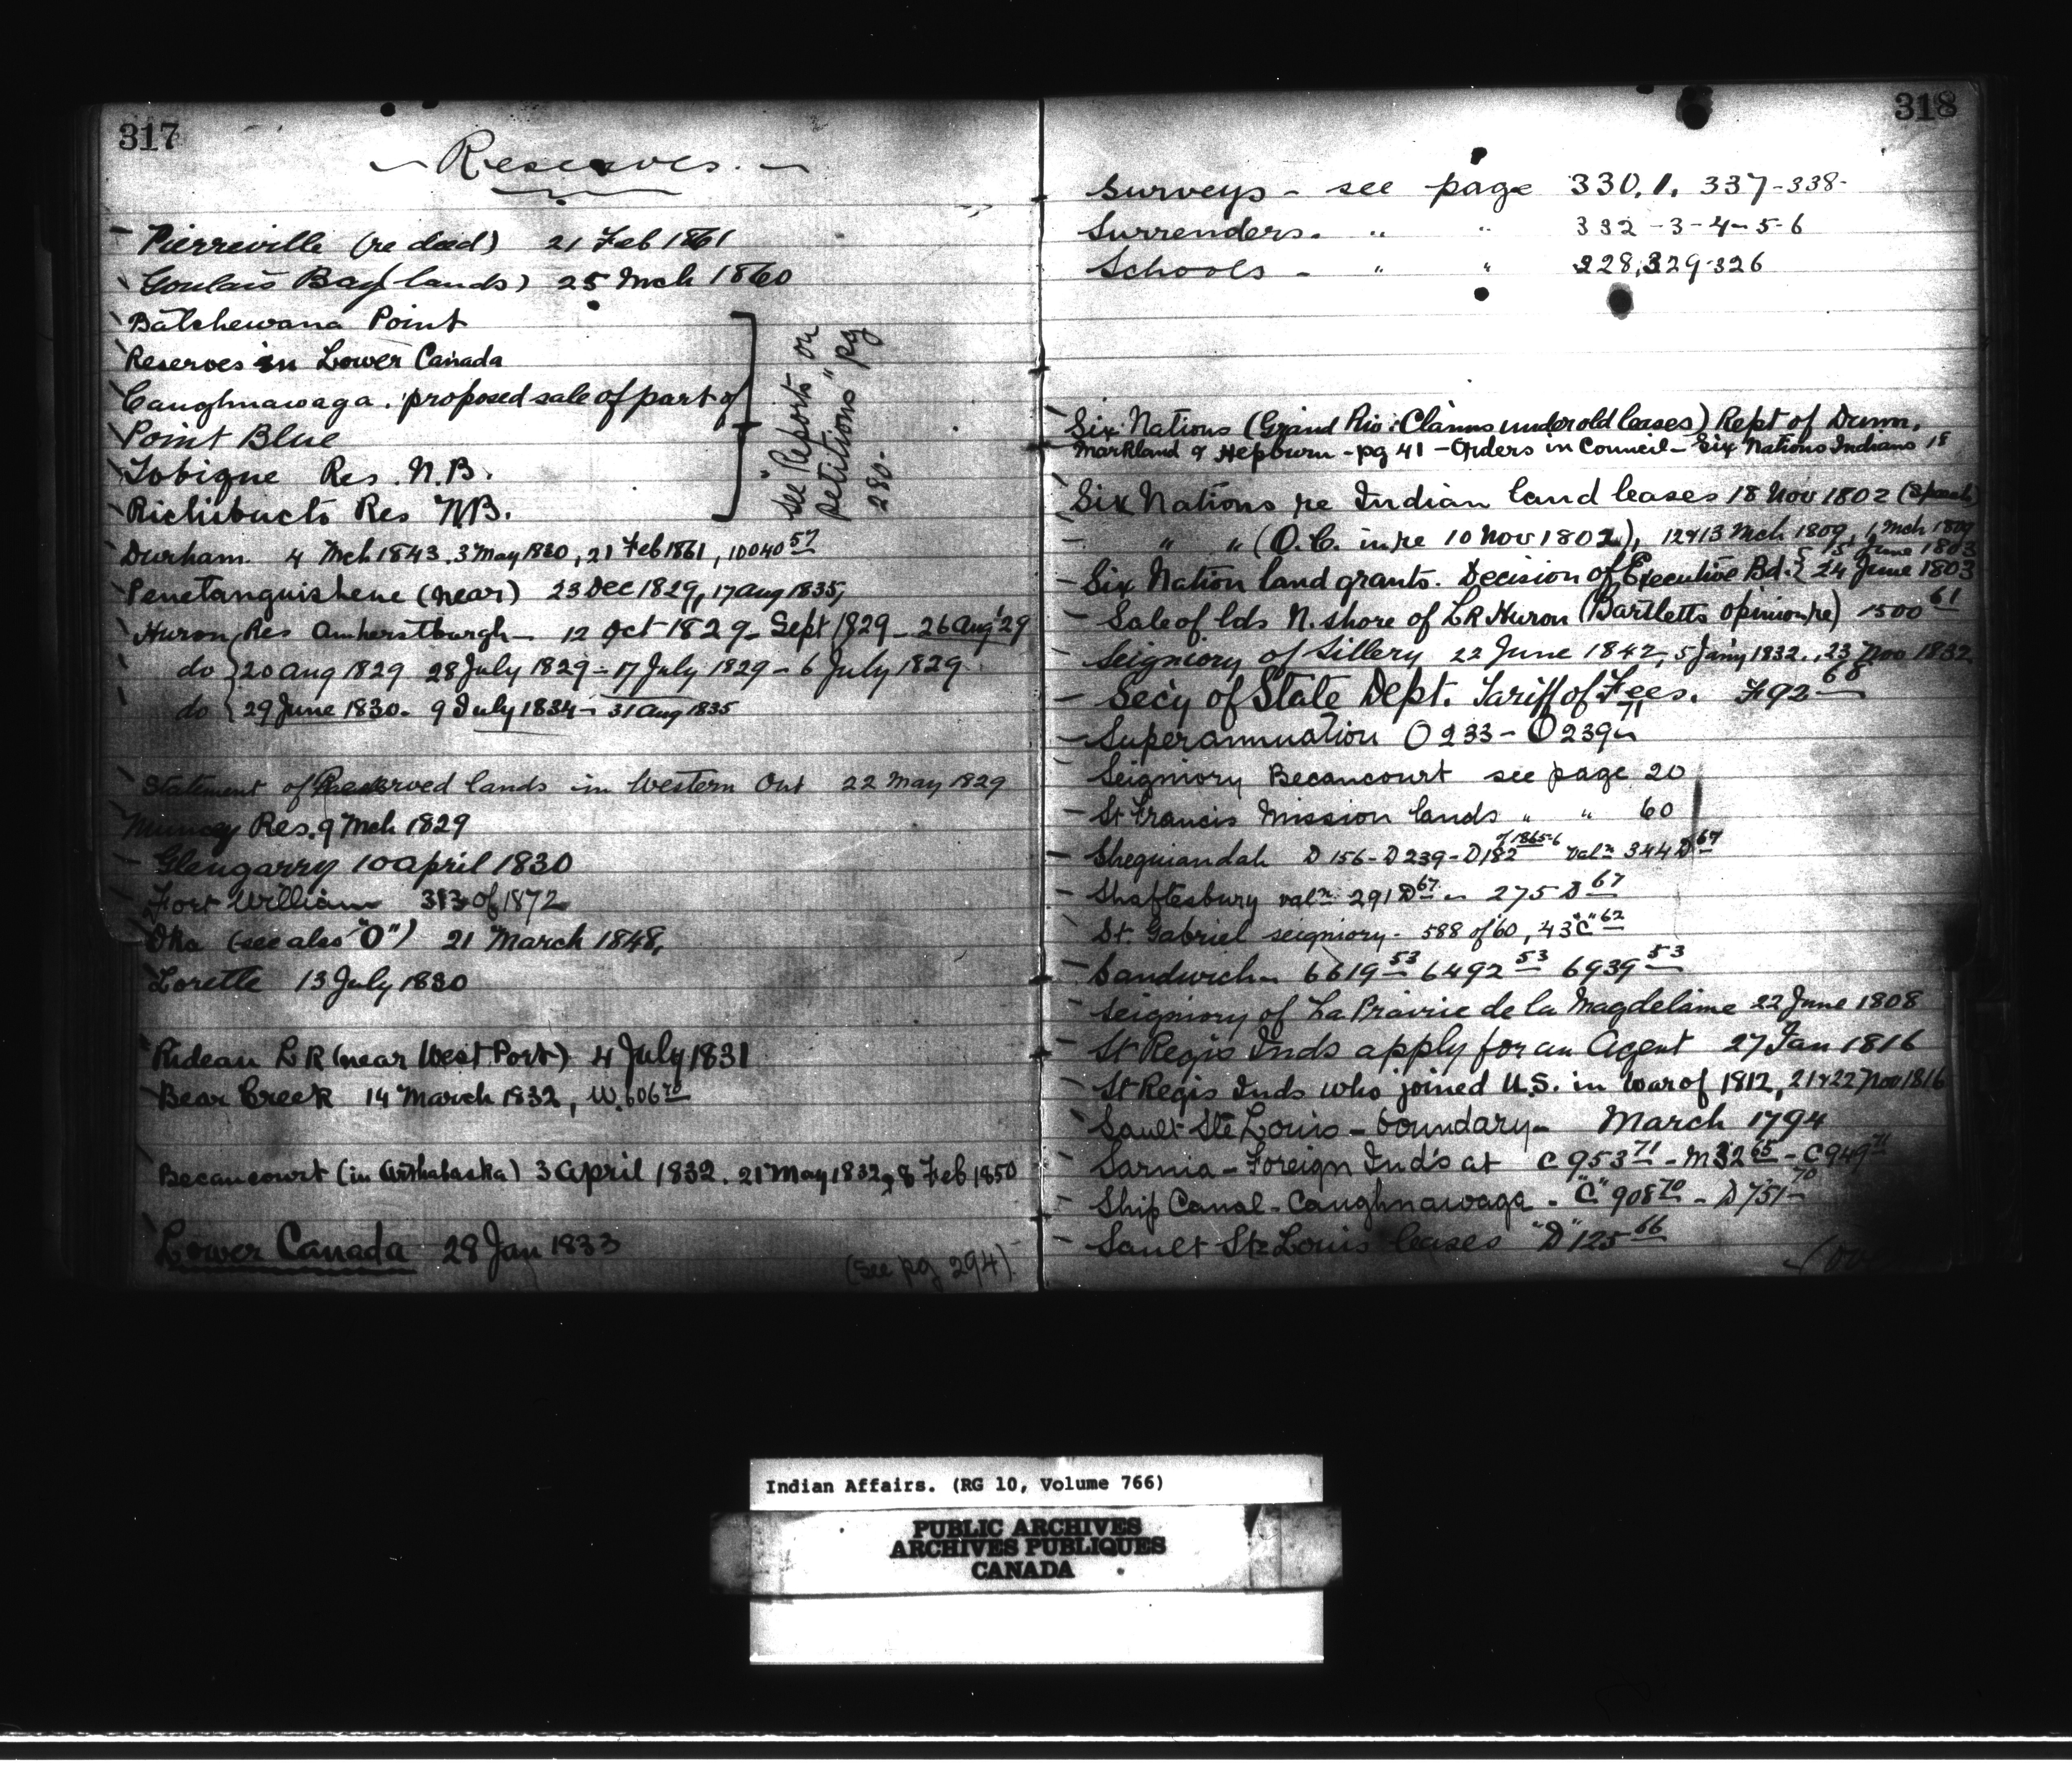 317
Reserves.
Pierreville (re deed) 21 Feb 1861
Goulais Bay (lands) 25 Mch 1860
Batchewana Point
Reserves in Lower Canada
Caughnawaga. proposed sale of part of
Point Blue
Tobique Res. N.B.
Richibucto Res N.B.
"see Reports on petitions" pg 280.
Durham. 4 Mch 1843. 3 May 1830, 21 Feb 1861, 10040 57
Penetanguishene (near) 23 Dec 1829, 17 Aug 1835,
Huron Res Amherstburgh - 12 Oct 1829 - Sept 1829 - 26 Aug '29
do { 20 Aug 1829 28 July 1829 - 17 July 1829 - 6 July 1829
do { 29 June 1830 - 9 July 1834 - 31 Aug 1835
Statement of Reserved lands in Western Ont 22 May 1829
Muncey Res. 9 Mch 1829
Glengarry 10 April 1830
Fort William 313 of 1872
Oka (see also "O") 21 March 1848,
Lorette 13 July 1830
Rideau LR (near West Port) 4 July 1831
Bear Creek 14 March 1832, W. 606 70
Becancourt (in Arthabaska) 3 April 1832. 21 May 1832, 8 Feb 1850
Lower Canada 29 Jan 1833
(see pg 294)
318
Surveys - see page 330, 1, 337-338-
Surrenders. " " 332-3-4-5-6
Schools - " " 328, 329-326
Six Nations (Grand Riv: Claims under old leases) Rept of Dunn,
Markland & Hepburn - pg 41 - Orders in Council - Six Nations Indians 18
Six Nations re Indian land leases 18 Nov 1802 (Speech)
" " (O.C. in re 10 Nov 1802), 12 & 13 Mch 1809, 1 Mch 1809
Six Nation land grants. Decision of Executive Bd. { 15 June 1803 24 June 1803
Sale of lds N. shore of LR Huron (Bartletts opinion re) 1500 61
Seigniory of Sillery 22 June 1842, 5 Jany 1832., 23 Nov 1832
Secy of State Dept. Tariff of Fees. F 92 68
Superannuation O 233 - O 239 71
Seigniory Becancourt see page 20
St Francis Mission lands " " 60
Sheguiandah D 156 - D 239 - D 182 of 1865-6 Valn 344 D 67
Shaftesbury valn 291 D 67 " 275 D 67
St. Gabriel seigniory - 588 of 60, 43 "C" 62
Sandwich - 6619 53 6492 53 6939 53
Seigniory of La Prairie de la Magdelaine 22 June 1808
St Regis Inds apply for an Agent 27 Jan 1816
St Regis Inds who joined U.S. in War of 1812, 21 & 22 Nov 1816
Sault Ste Louis - boundary - March 1794
Sarnia - Foreign Ind's at C 953 71 - M 32 65 - C 949 71
Ship Canal - Caughnawaga - "C" 908 70 - D 751 70
Sault St Louis leases "D" 125 66
Indian Affairs. (RG 10, Volume 766)
PUBLIC ARCHIVES
ARCHIVES PUBLIQUES
CANADA